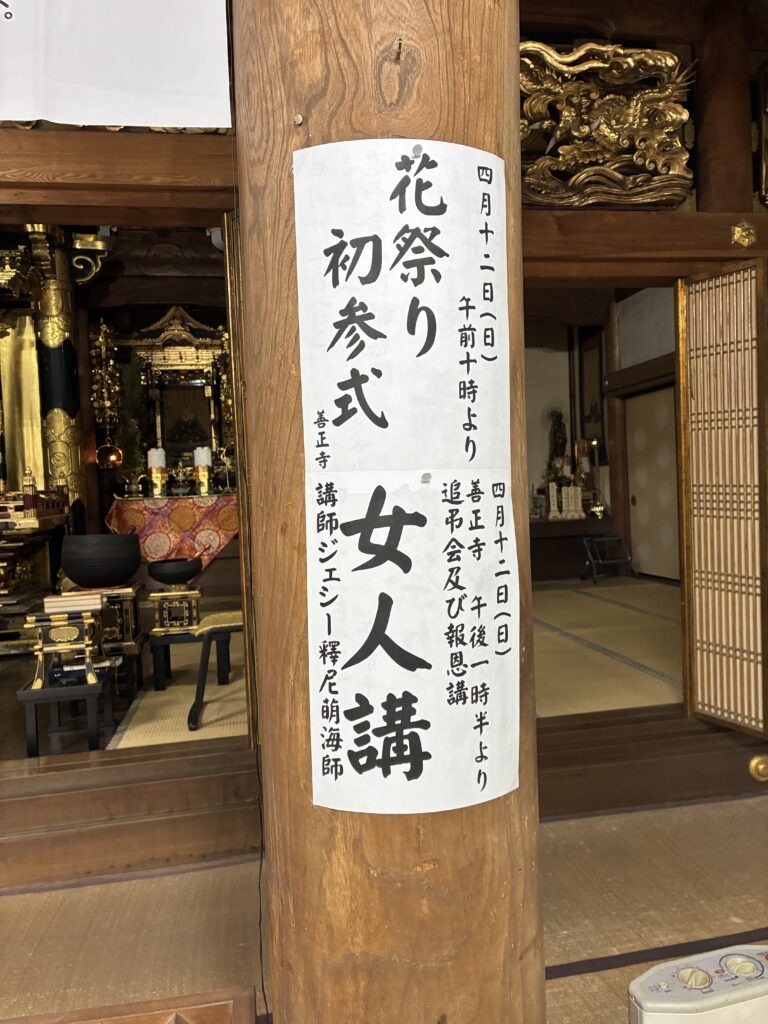 四月十二日(日)
午前十時より
花祭り
初参式
善正寺
四月十二日(日)
善正寺 午後一時半より
追弔会及び報恩講
女人講
講師ジェシー釋尼萌海師